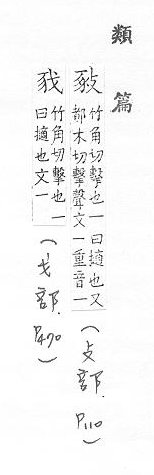 類篇
竹角切擊也一曰擿也又
都木切擊聲文一重音一
(攴部. P110)
竹角切擊也一
曰擿也文一
(戈部. P470)